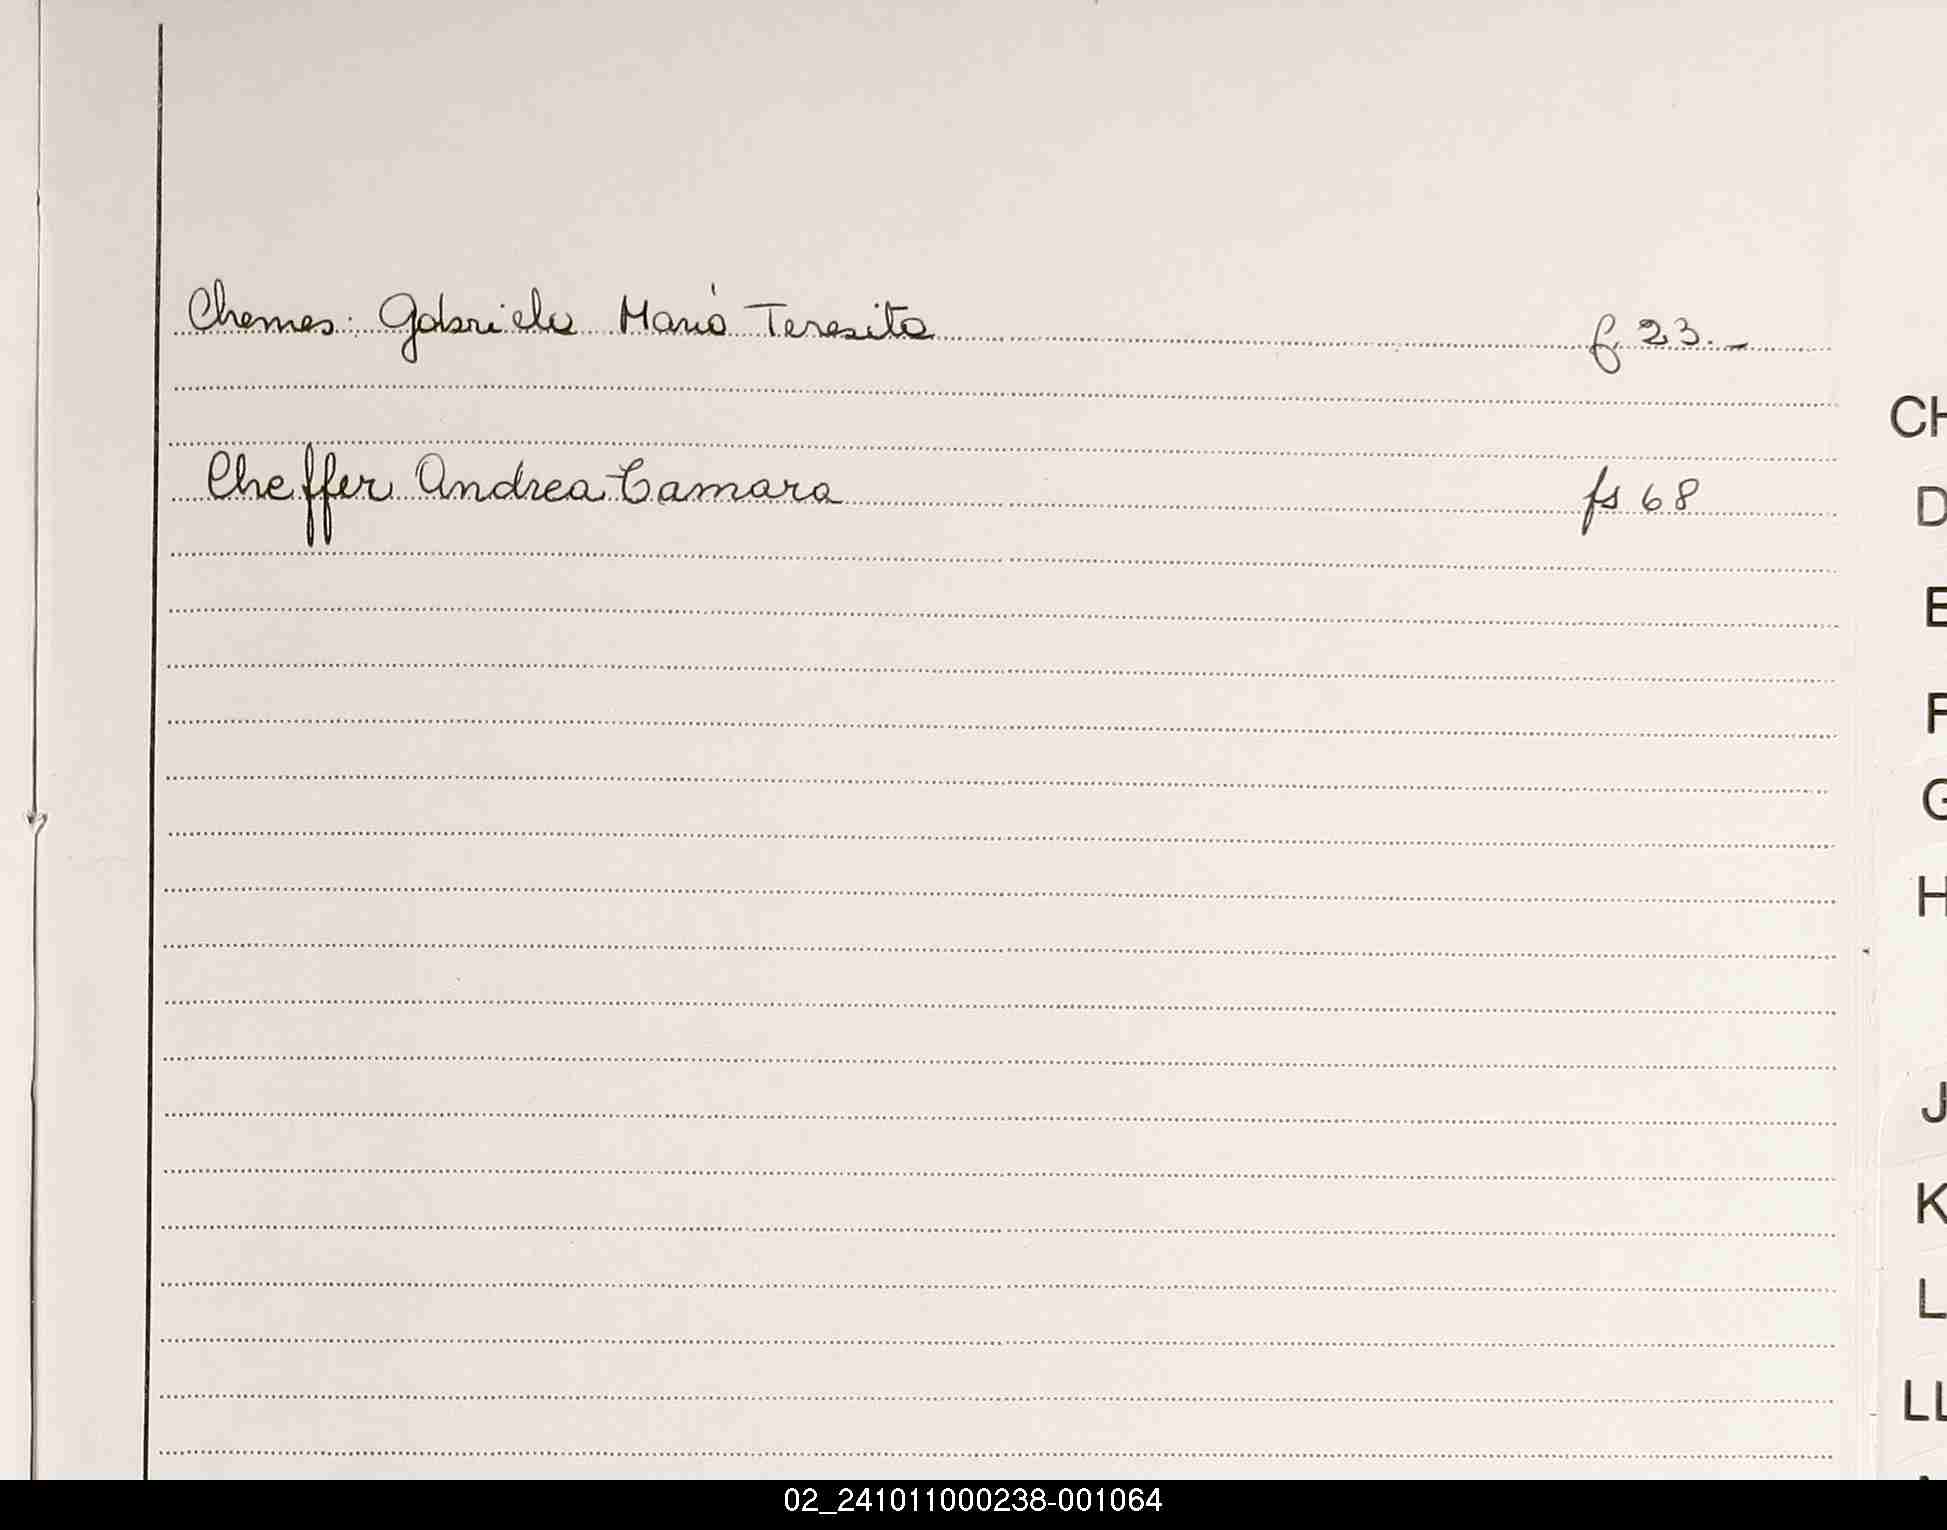 Chemes: Gabriela María Teresita f. 23.-
Cheffer Andrea Tamara fs 68
CH
D
E
F
G
H
J
K
L
LL
02_241011000238-001064